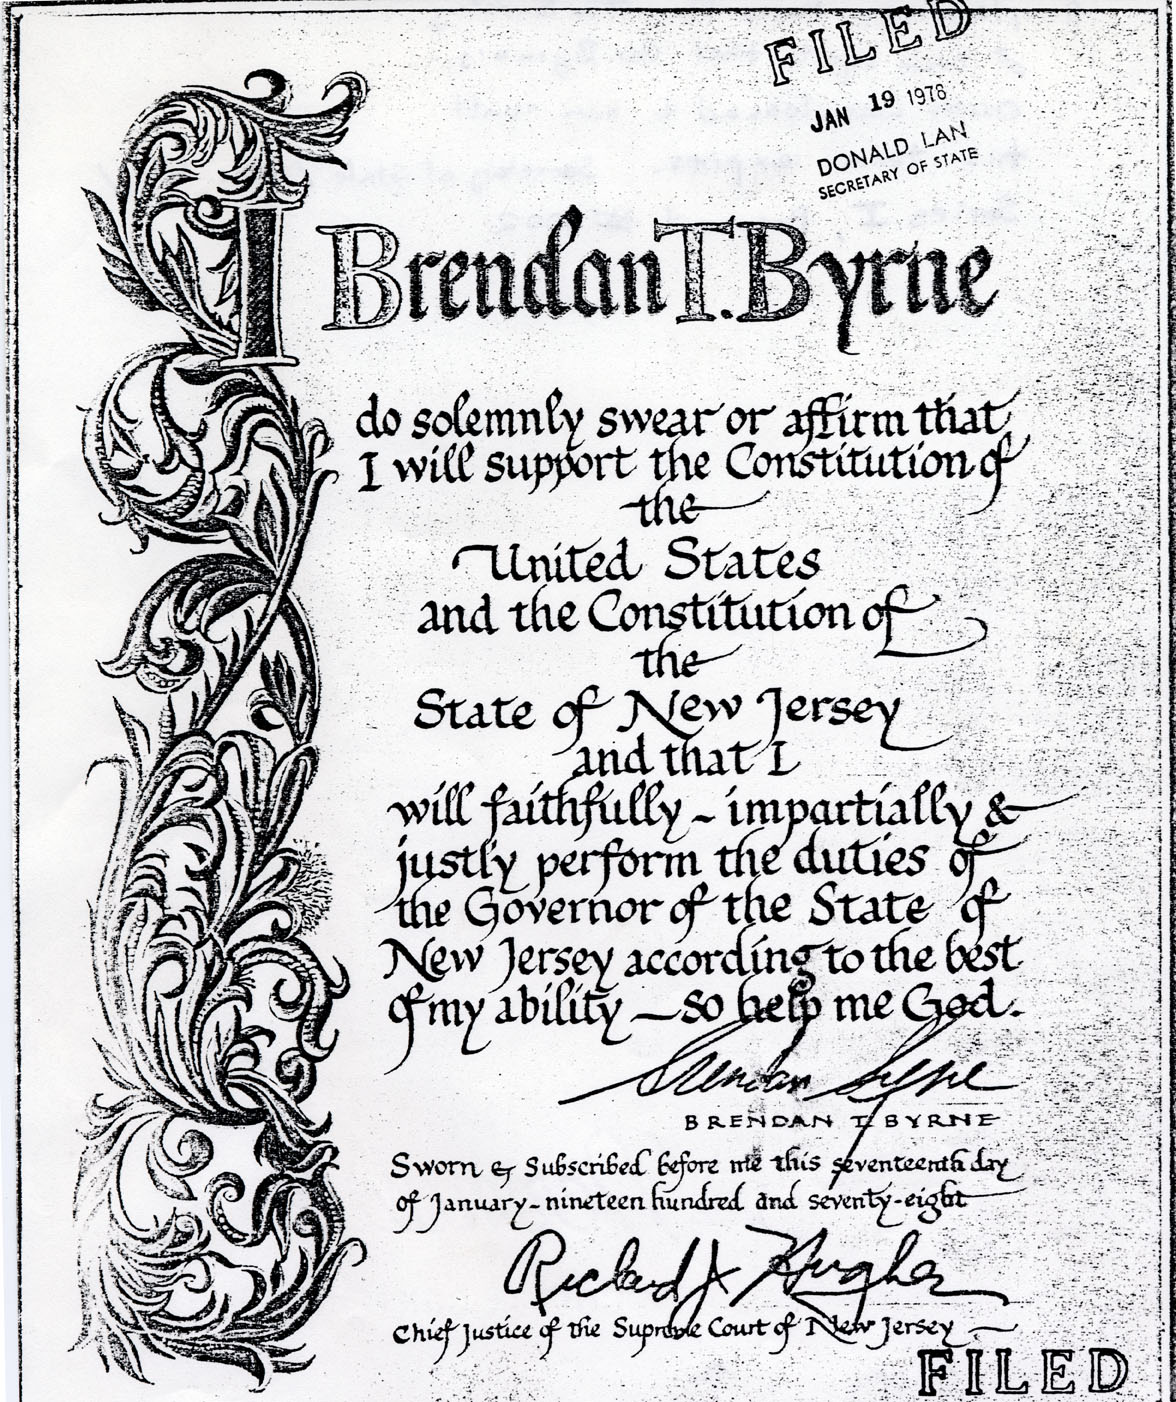 FILED
JAN 19 1978
DONALD LAN
SECRETARY OF STATE
I Brendan T. Byrne
do solemnly swear or affirm that
I will support the Constitution of
the
United States
and the Constitution of
the
State of New Jersey
and that I
will faithfully ~ impartially &
justly perform the duties of
the Governor of the State of
New Jersey according to the best
of my ability — so help me God.
Brendan Byrne
BRENDAN T. BYRNE
Sworn & Subscribed before me this seventeenth day
of January ~ nineteen hundred and seventy-eight
Richard J. Hughes
Chief Justice of the Supreme Court of New Jersey
FILED